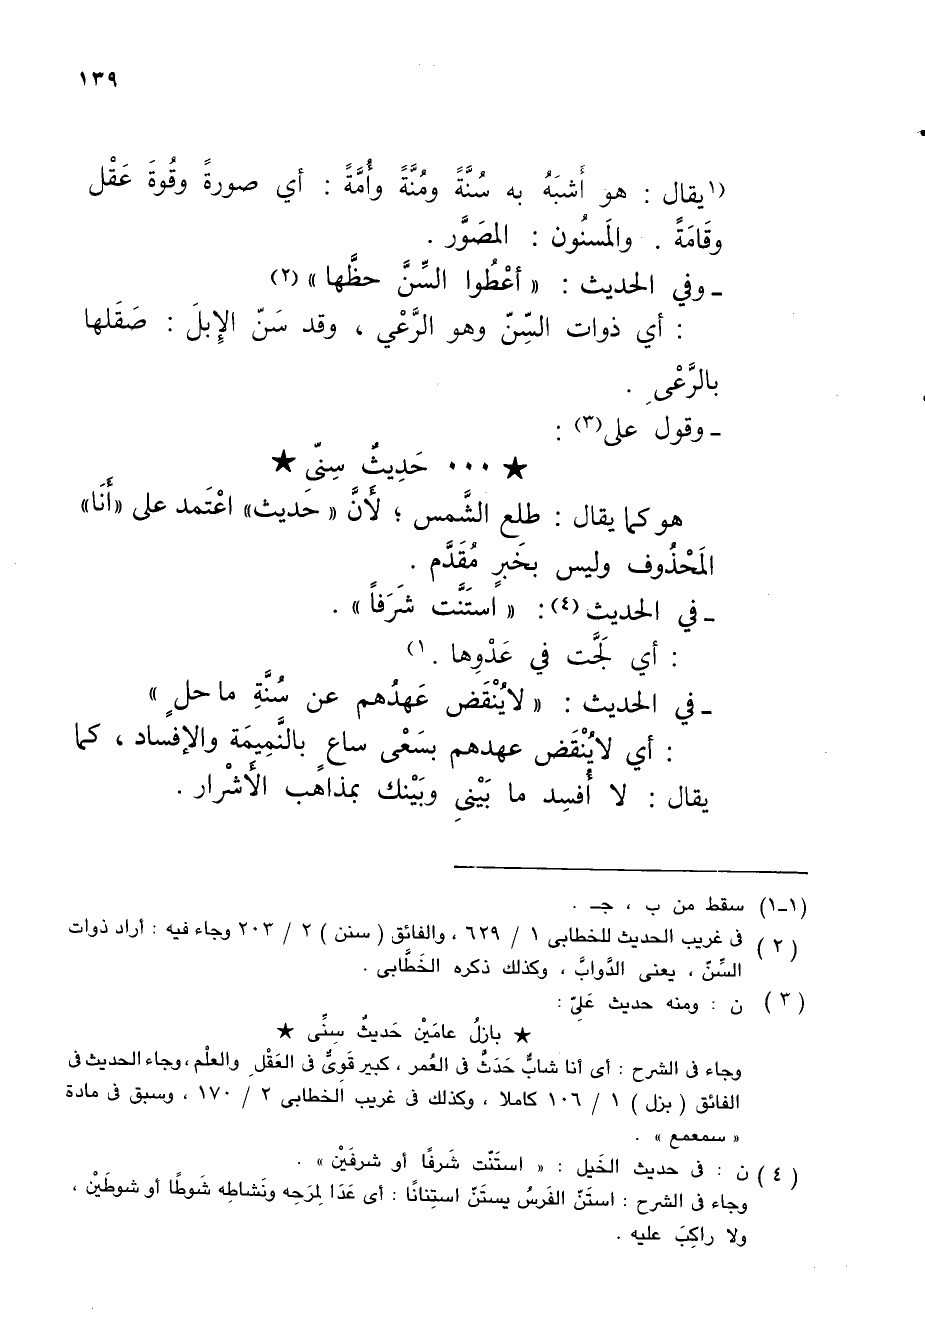 ١٣٩
(١يقال : هو أَشبَهُ به سُنَّةً ومُنَّةً وأُمَّةً : أي صورةً وقُوةَ عَقْل
وقَامَةً . والمَسنُون : المصَوَّر .
ـ وفي الحديث : « أعْطُوا السِّنَّ حظَّها » (٢)
: أي ذوات السِّنّ وهو الرَّعْي ، وقد سَنّ الإِبلَ : صَقَلها
بالرَّعْىِ .
ـ وقول على(٣) :
★ ٠٠٠ حَدِيثٌ سِنِّى ★
هو كما يقال : طلع الشَّمس ؛ لأَنَّ « حَديث» اعْتَمد على «أَنَا»
المَحْذُوف وليس بخَبرٍ مُقَدَّم .
ـ في الحديث (٤): « استَنَّت شَرَفاً » .
: أي لَجَّت في عَدْوِها . ١)
ـ في الحديث : « لايُنْقَض عَهدُهم عن سُنَّةِ ماحلٍ »
: أي لايُنْقَض عهدهم بسَعْى ساعٍ بالنَّمِيمَة والإفساد ، كما
يقال : لا أُفسِد ما بَيْنِى وبَيْنك بمذاهب الأَشْرار .
(١ـ١) سقط من ب ، جـ .
(٢) فى غريب الحديث للخطابى ١ / ٦٢٩ ، والفائق ( سنن ) ٢ / ٢٠٣ وجاء فيه : أراد ذوات
السِّنّ ، يعنى الدَّوابَّ ، وكذلك ذكره الخَطَّابى .
(٣) ن : ومنه حديث عَلِىّ :
★ بازلُ عامَيْن حَديثٌ سِنِّى ★
وجاء فى الشرح : أى أنا شابٌّ حَدَثٌ فى العُمر ، كبير قَوِىٌّ فى العَقْلِ والعلْم ، وجاء الحديث فى
الفائق ( بزل ) ١ / ١٠٦ كاملا ، وكذلك فى غريب الخطابى ٢ / ١٧٠ ، وسبق فى مادة
« سمعمع » .
(٤) ن : فى حديث الخَيل : « استَنَّت شَرفًا أو شرفَيْن » .
وجاء فى الشرح : استَنّ الفَرسُ يستَنّ استِنانًا : أى عَدَا لِمَرَحِه ونَشاطِه شَوطًا أو شوطَيْن ،
ولا راكِبَ عليه .